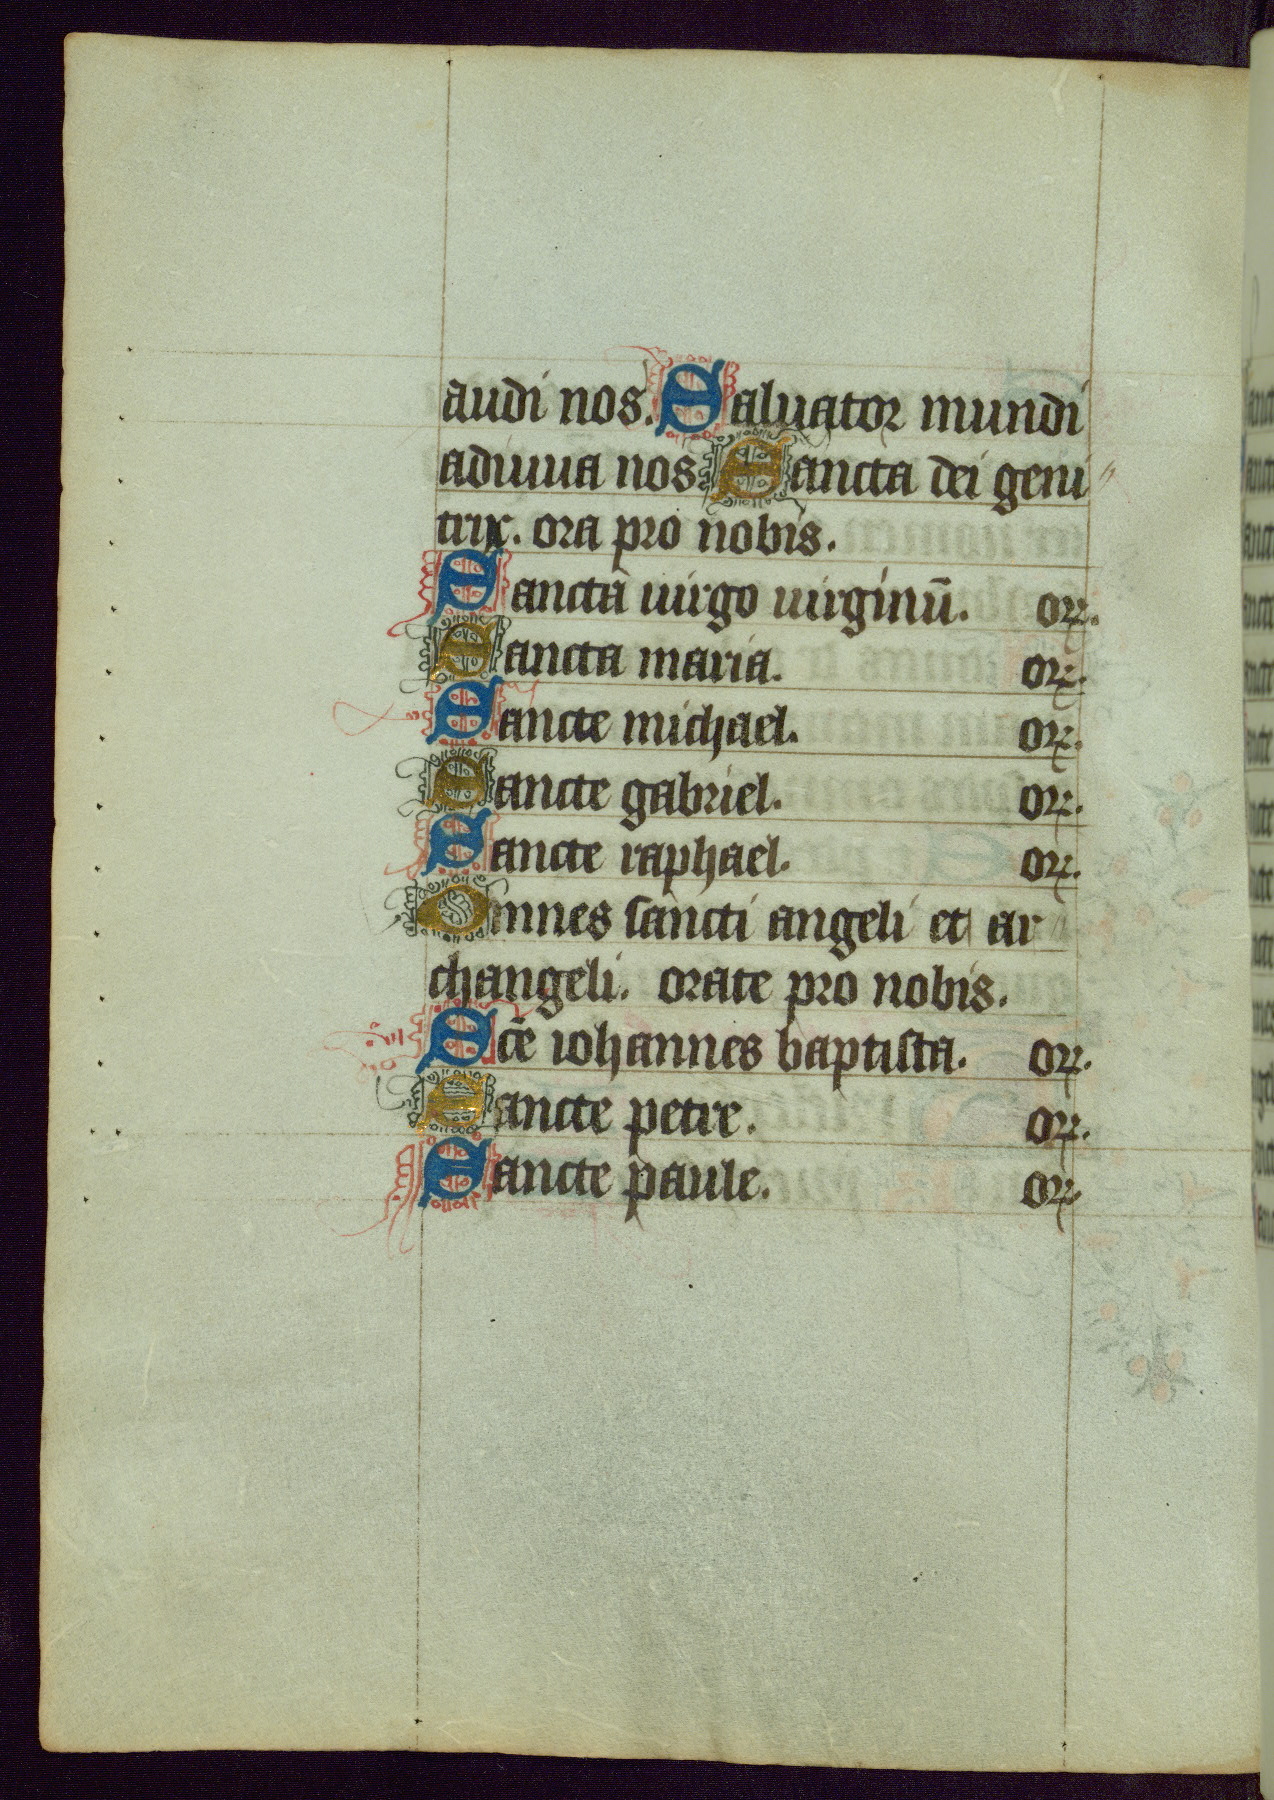 audi nos. Saluator mundi
adiuua nos. Sancta dei geni
trix. ora pro nobis.
Sancta uirgo uirginū. or.
Sancta maria. or.
Sancte michael. or.
Sancte gabriel. or.
Sancte raphael. or.
Omnes sancti angeli et ar
changeli. orate pro nobis.
Scē iohannes baptista. or.
Sancte petre. or.
Sancte paule. or.